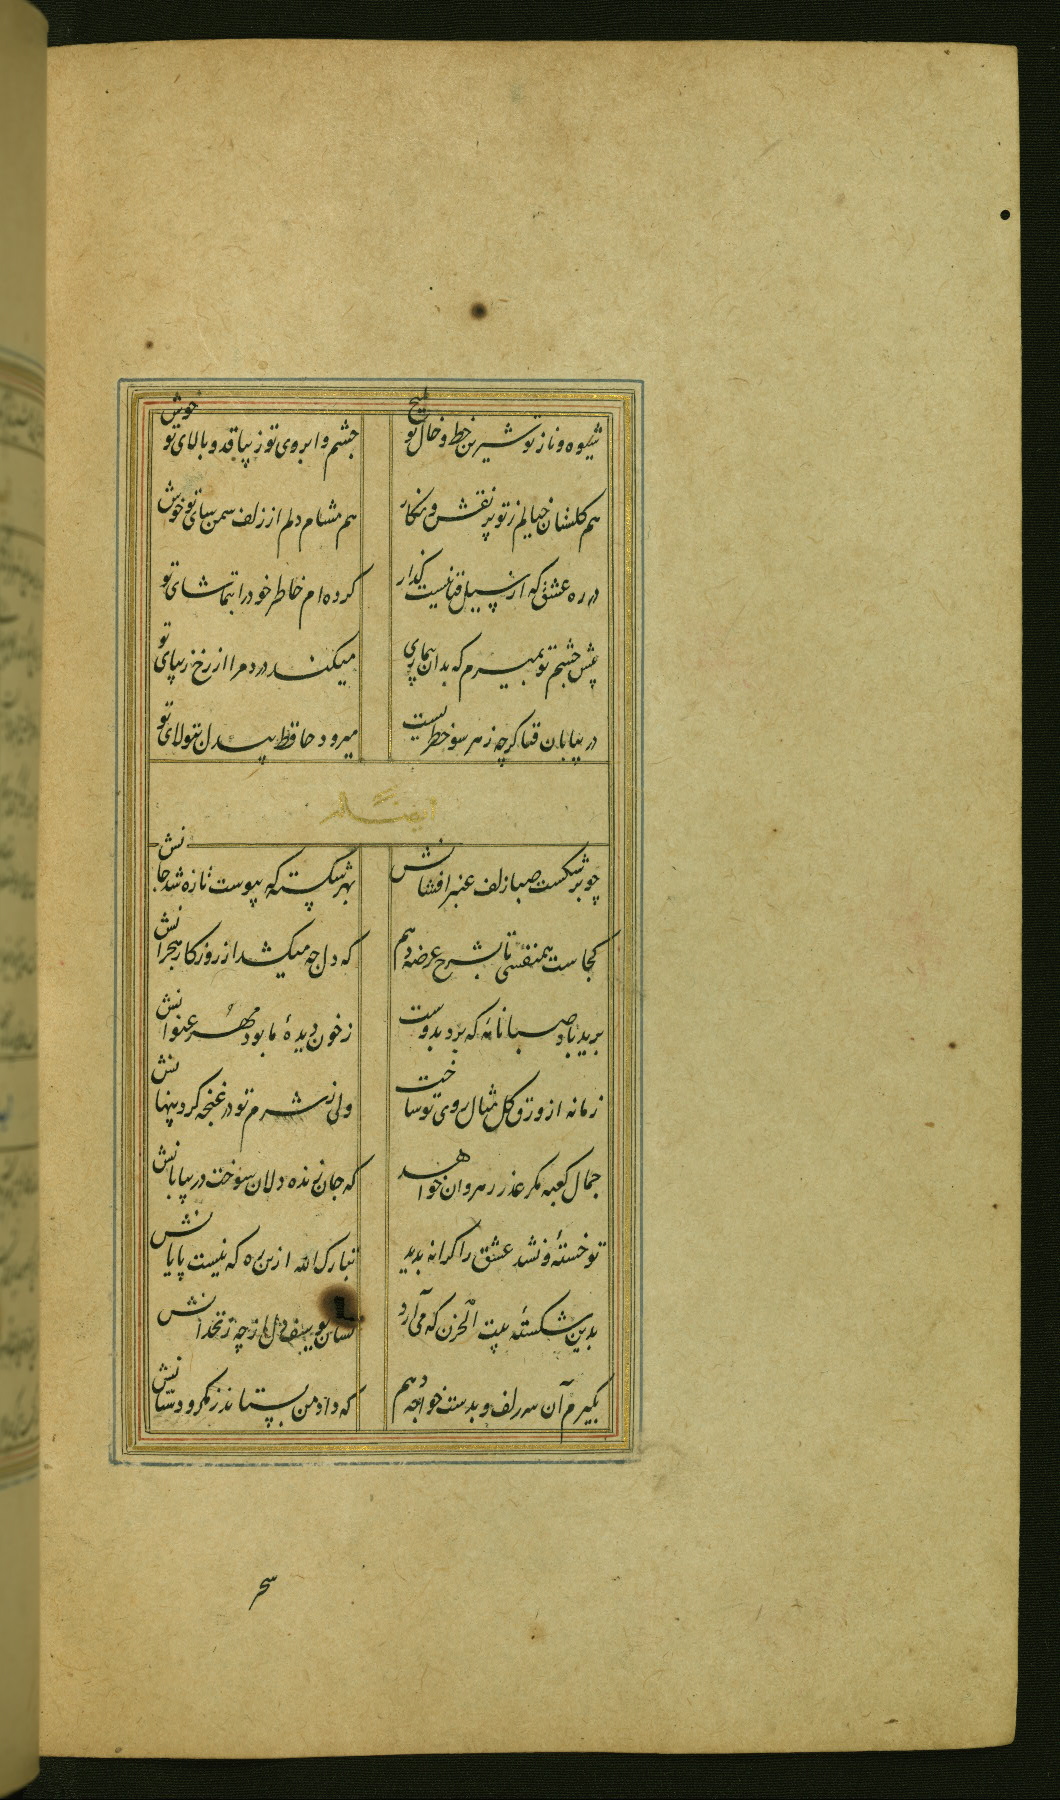 شیوه و ناز تو شیرین خط و خال تو ملیح
چشم و ابروی تو زیبا قد و بالای تو خوش
هم گلستان خیالم ز تو پر نقش و نگار
هم مشام دلم از زلف سمن سای تو خوش
در ره عشق که از سیل فنا نیست گذار
کرده ام خاطر خود را بتماشای تو
پیش چشم تو بمیرم که بدان بیماری
میکند درد مرا از رخ زیبای تو
در بیابان فنا گرچه ز هر سو خطریست
میرود حافظ بیدل بتولای تو
ایضا له
چو بر شکست صبا زلف عنبر افشانش
بهر شکسته که پیوست تازه شد جانش
کجاست همنفسی تا بشرح عرضه دهم
که دل چه میکشد از روزگار هجرانش
برید باد صبا نامهٔ که برد بدوست
ز خون دیدهٔ ما بود مهر عنوانش
زمانه از ورق گل مثال روی تو ساخت
ولی ز شرم تو در غنچه کرد پنهانش
جمال کعبه مگر عذر رهروان خواهد
که جان زنده دلان سوخت در بیابانش
تو خستهٔ و نشد عشق را کرانه پدید
تبارک الله ازین ره که نیست پایانش
بدین شکستهٔ بیت الحزن که می آرد
نشان یوسف دل از چه زنخدانش
بگیرم آن سر زلف و بدست خواجه دهم
که داد من بستاند ز مکر و دستانش
سحر